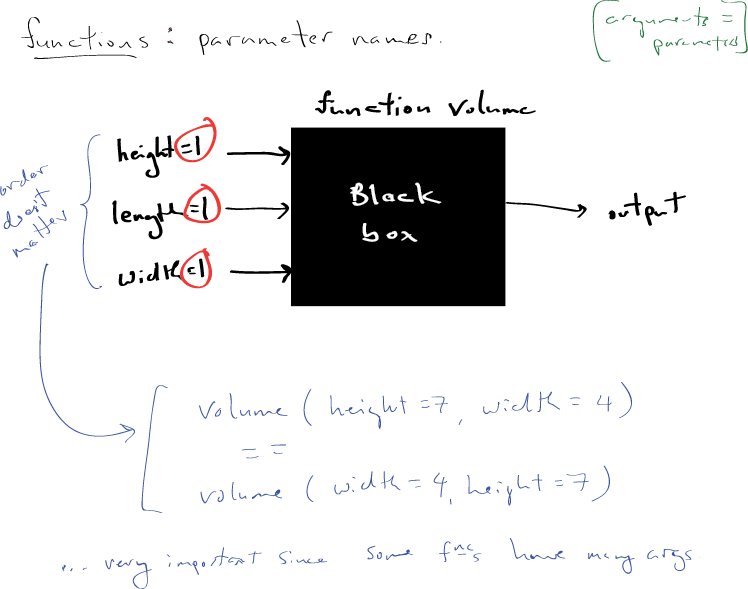 functions : parameter names.
[arguments =
parameters]
function volume
height =1
length =1
width =1
Black
box
output
order
doesn't
matter
volume ( height =7, width = 4)
==
volume ( width = 4, height =7)
... very important since some fncs have many args